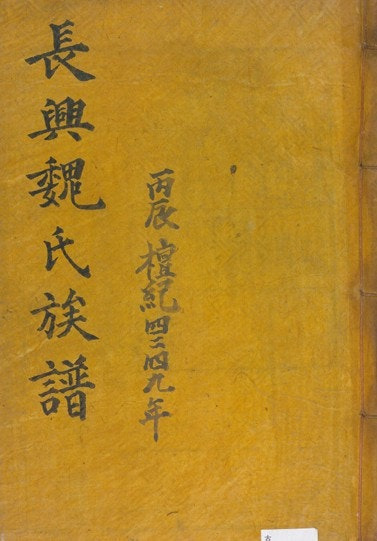 長興魏氏族譜
丙辰 檀紀四二四九年